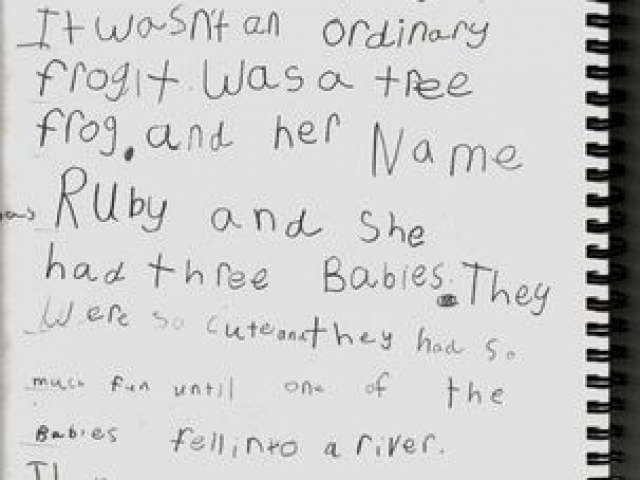 It wasn't an ordinary
frog it was a tree
frog. and her Name
was Ruby and she
had three Babies. They
were so cute and they had so
much fun until one of the
Babies fell into a river.